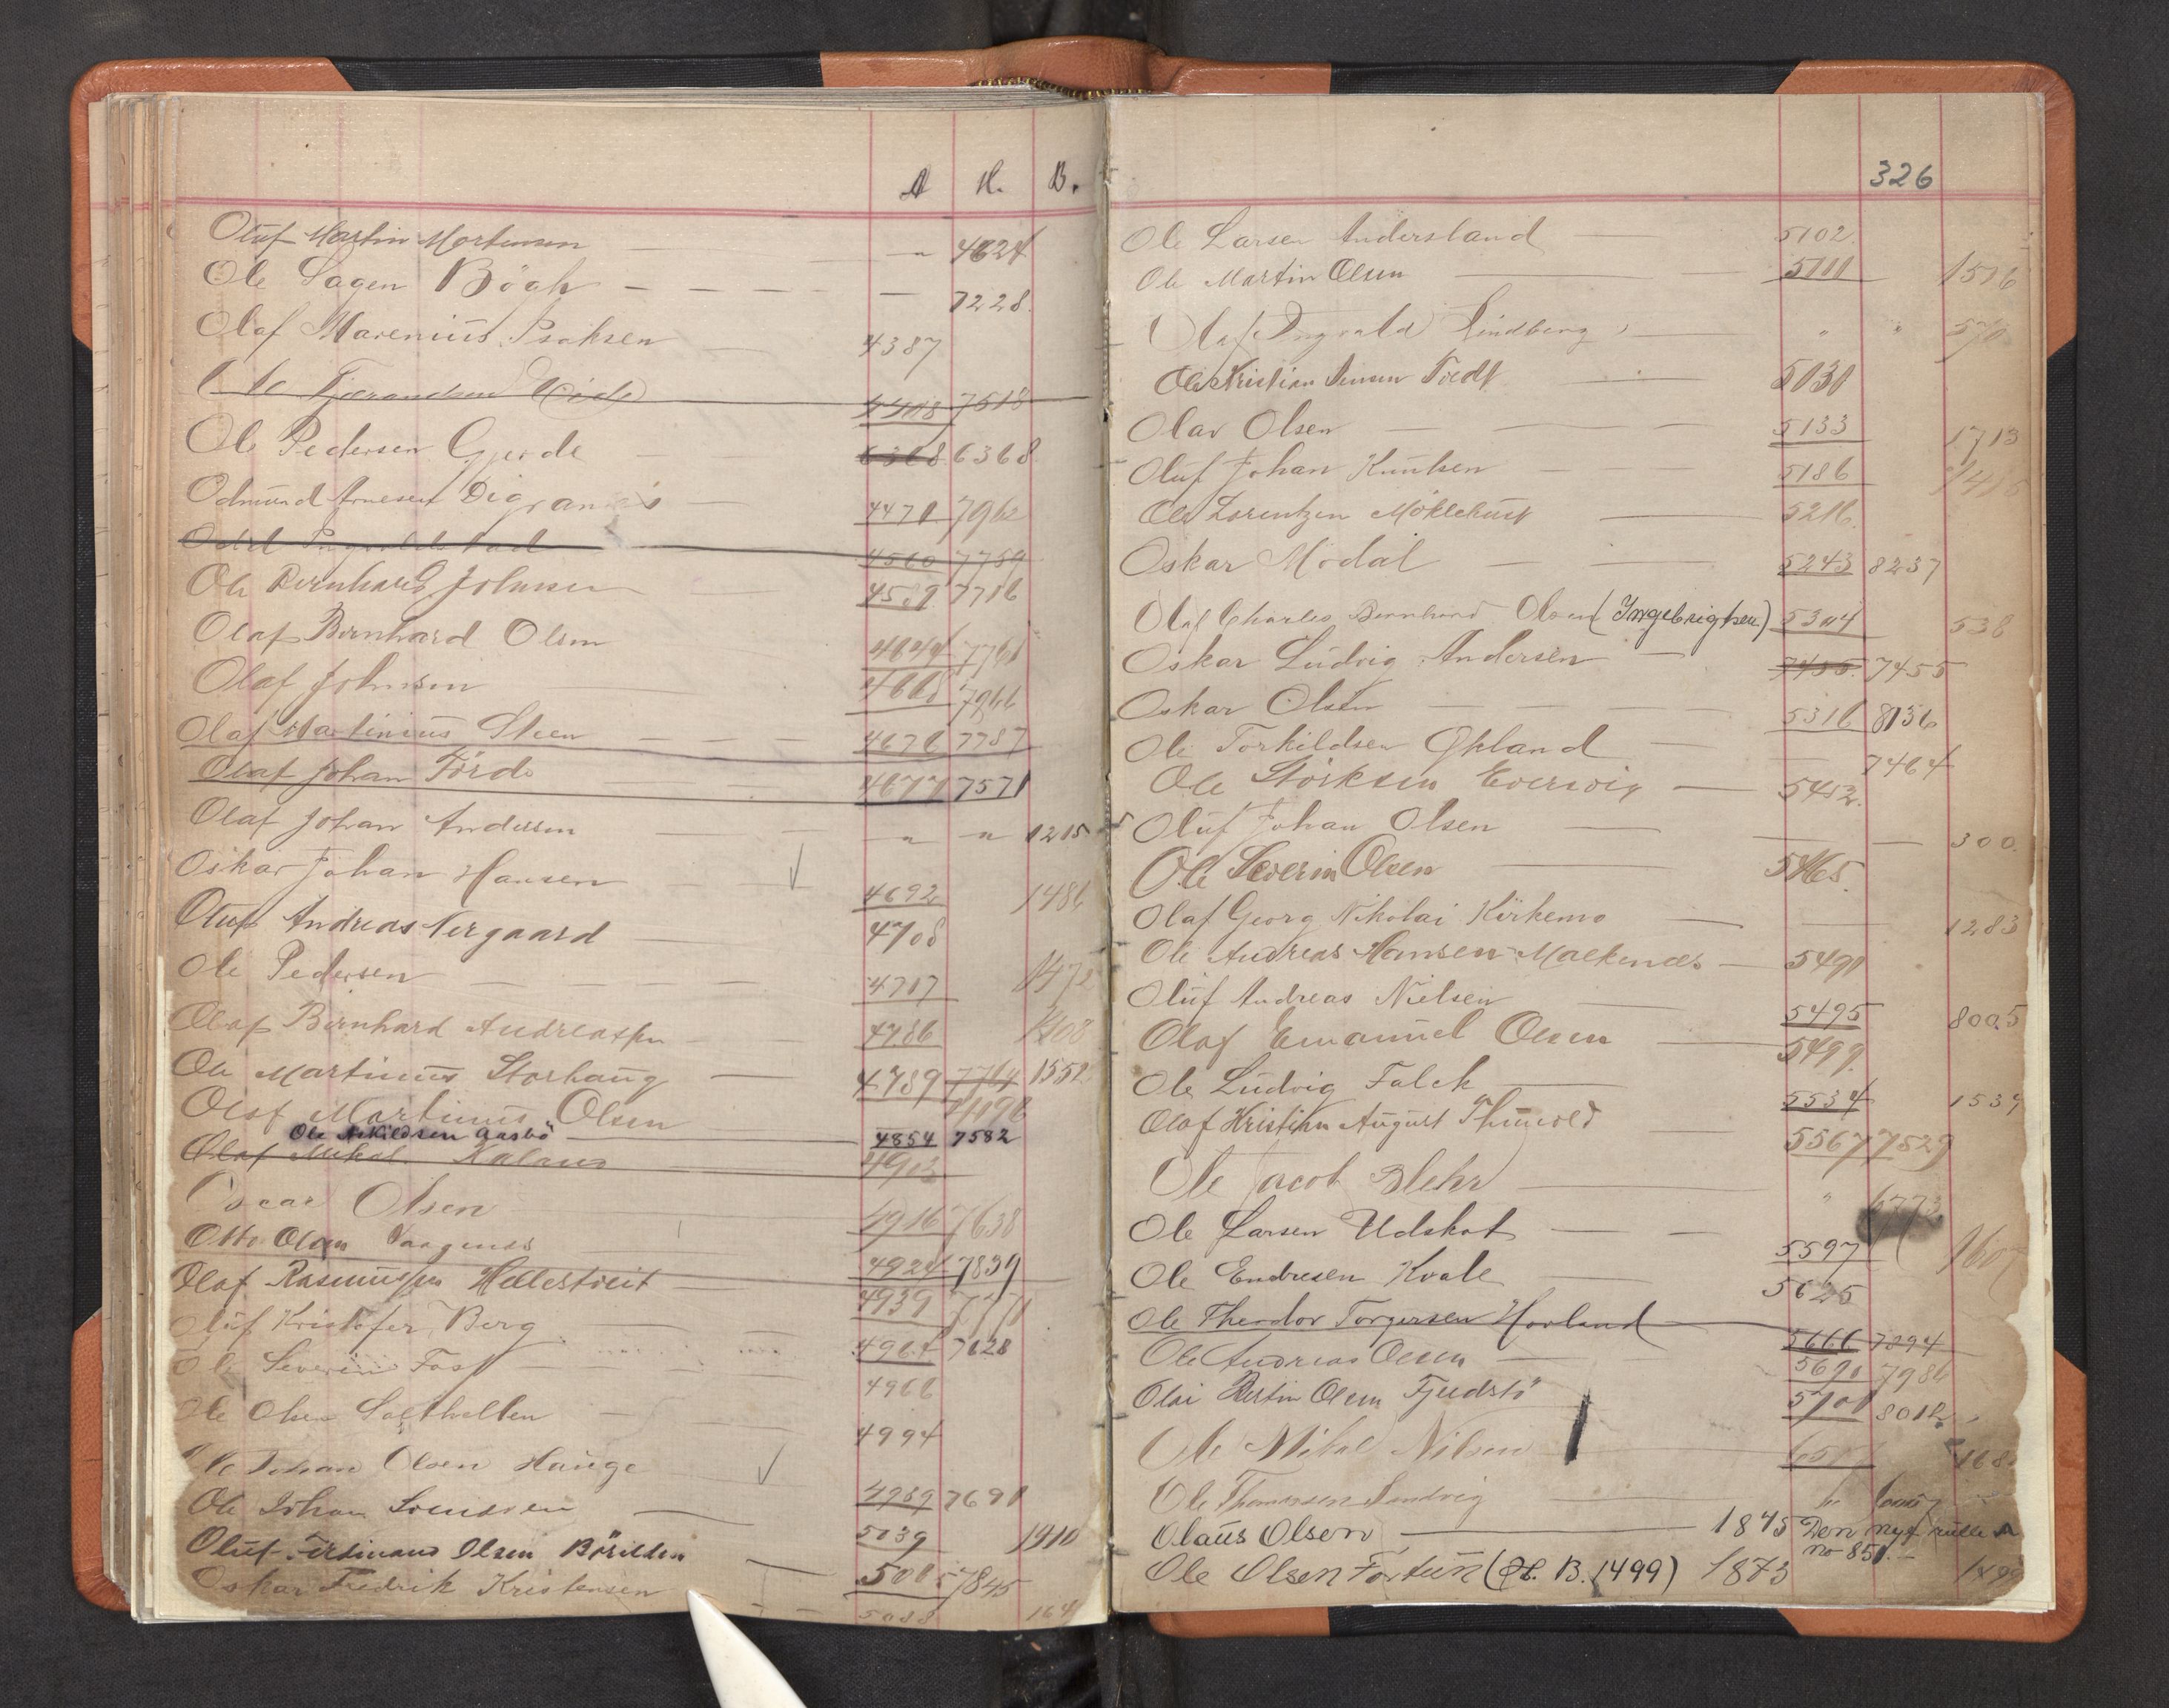 A H. B.
Oluf Martin Mortensen — " 4624
Ole Sagen Bögh — — — — — 7228.
Olaf Marenius Isaksen — 4387
Ole Tjerandsen 4408 7518
Ole Pedersen Gjerde — 6368 6368
Odmund Arnesen Digranæs — 4471 7962
4560 7759
Ole Bernhard Johnsen 4581 7716
Olaf Bernhard Olsen 4644 7761
Olaf Johnsen — 4668 7966
Olaf Martinius Steen — — — 4676 7787
Olaf Johan Förde — 4677 7571
Olaf Johan Andersen — — " — " — 1215
Oskar Johan Hansen — — √ 4692 1486
Oluf Andreas Nergaard — 4708
Ole Pedersen — — — 4717 1472
Olaf Bernhard Andreassen — 4786 1408
Ole Martinus Storhaug — 4789 7764 1552
Olaf Martinus Olsen
Ole Askildsen Aasbö — 4854 7582
Olaf Mikal 4903
Oscar Olsen — 4916 7638
Otto Olsen Vaagenes 4924 7839
Olaf Rasmussen Hellestveit — 4939 7771
Oluf Kristofer Berg 4964 7628
Ole Severin Fast — — — 4966
Ole Olsen Saltvelten — 4994
Ole Johan Olsen Hauge √ 4989 7691
Ole Johan — 5039 1410
Oluf Ferdinand Olsen Börildsen — 5065 7845
Oskar Fredrik Kristensen — — 5088 164
326
Ole Larsen Andersland — 5102
Ole Martin Olsen — 5111 1516
Olaf Ingvald Lindberg — " " 570
Ole Kristian Jensen Tvedt — 5131
Olav Olsen — — — 5133 1713
Oluf Johan Knutsen — 5186
Ole Lorentzen Möklebust — 5216.
Oskar Modal — — 5243 8237
Olaf Charles Bernhard Olsen (Ingebrigtsen) 5304 538
Oskar Ludvig Andersen — 7455. 7455
Oskar Olsen — — — 5316 8136
Ole Torkildsen Økland — — 7464
Ole Störksen Evervig — 5412.
Oluf Johan Olsen — — — 300.
Ole Severin Olsen — 5465.
Olaf Georg Nikolai Kirkemo — — 1283
Ole Andreas Hansen Malkenes — 5491
Oluf Andreas Nielsen — 5495 8005
Olaf Emanuel Olsen — 5499.
Ole Ludvig Falck — 5534 1539
Olaf Kristian August Thunold — 5567 7529
Ole Jacob Blehr — " 6773
Ole Larsen Udskot — — 5597 1607
Ole Endresen Kvale — 5625
Ole Theodor Torgersen Hovland — 5666 7394
Ole Andreas Olsen — 5690 7986
Olai Bertin Olsen Fjeldstö 5701 8012
Ole Mikal Nilsen — 168
Ole Thomassen Sandvig — "
Olaus Olsen — 1845 Den nye rulle A
no 851. —
Ole Olsen Fortun (H. B. 1499) 1873 1499